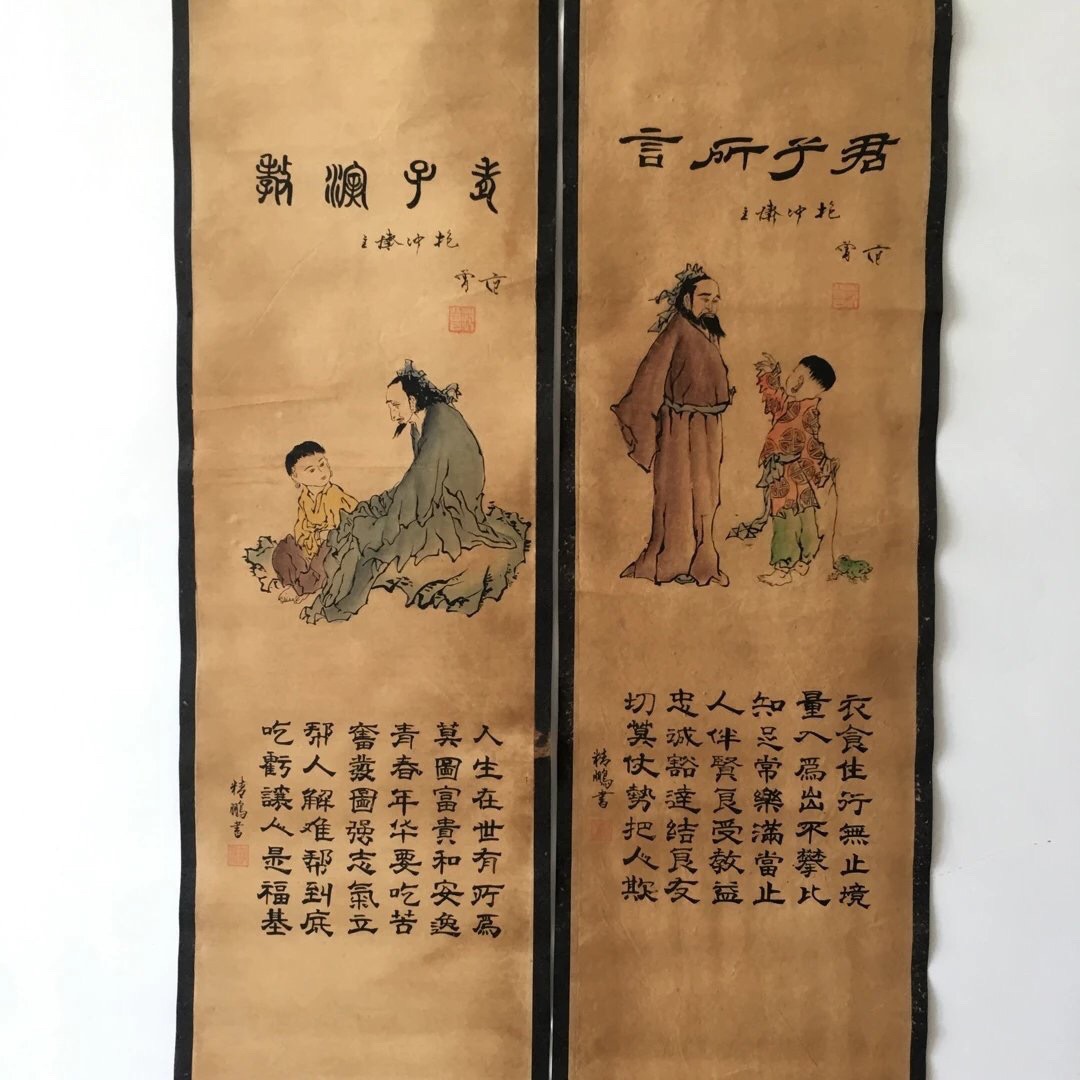 君子所言
抱冲齋主
范曾
衣食住行無止境
量入爲出不攀比
知足常樂滿當止
人伴賢良受教益
忠誠豁達結良友
切莫仗勢把人欺
精鵬書
老子演教
抱冲齋主
范曾
人生在世有所爲
莫圖富貴和安逸
青春年华要吃苦
奮發圖强志氣立
帮人解难帮到底
吃虧讓人是福基
精鵬書